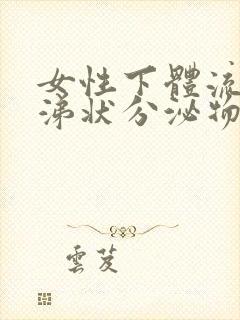 女性下體流
涕狀分泌物
雲芨